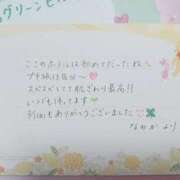 グリーンピ
ここのホテルは初めてだったね♡
プチ旅行気分〜💕
スベスベしてて肌ざわり最高!!
いつも待ってます💛
前回もありがとうございました🍀
なのかより